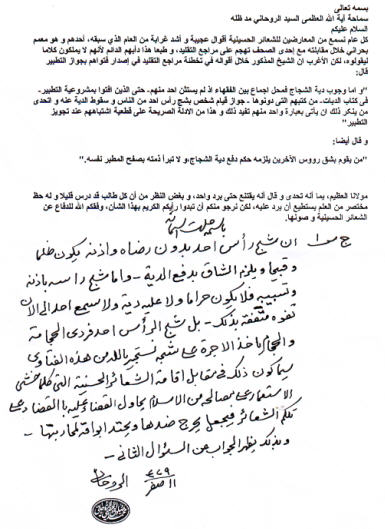 بسمه تعالى
سماحة آية الله العظمى السيد الروحاني مد ظله
السلام عليكم
كل عام نسمع من المعارضين للشعائر الحسينية أقوال عجيبة و أشد غرابة من العام الذي سبقه، أحدهم و هو معمم
بحراني خلال مقابلته مع إحدى الصحف تهجم على مراجع التقليد، و طبعا هذا دأبهم الدائم لأنهم لا يملكون كلاما
ليقولوه، لكن الأغرب ان الشيخ المذكور خلال أقواله في تخطئة مراجع التقليد في إصدار فتواهم بجواز التطبير
قال:
"و اما وجوب دية الشجاج فمحل اجماع بين الفقهاء اذ لم يستثن احد منهم- حتى الذين افتوا بمشروعية التطبير-
في كتاب الديات- من كتبهم التى دونوها - جواز قيام شخص بشج رأس احد من الناس و سقوط الدية عنه و اتحدى
من ينكر ذلك ان يأتى بعبارة واحد منهم تفيد ذلك و هذا من الادلة الصريحة على قطعية اشتباههم عند تجويز
التطبير"
و قال أيضا:
"من يقوم بشق رووس الآخرين يلزمه حكم دفع دية الشجاج،و لا تبرأ ذمته بصفح المطبر نفسه."
مولانا العظيم، بما أنه تحدى و قال أنه يقتنع حتى يرد واحد، و بغض النظر من أن كل طالب قد درس قليلا و له حظ
مختصر من العلم يستطيع أن يرد عليه، لكن نرجو منكم أن تبدوا رأيكم الكريم بهذا الشأن، وفقكم الله للدفاع عن
الشعائر الحسينية و صونها.
باسمه جلت اسمائه
ج س١ ان شج رأس احد بدون رضاه و اذنه يكون ظلما
و قبيحا و يلزم الشاق بدفع الدية - و اما شج راسه باذنه
و تسبيبه فلا يكون حراما و لا عليه دية و لا سمع احد الى الان
تفوه متفقه بذلك - بل شج الرأس احد فردى الحجامة
و الحجام ياخذ الاجرة على شجه نستجير بالله من هذه الفتاوى
سيما كون ذلك في مقابل اقامة الشعائر الحسينية التى كلما خشى
الاستعمار على مصالحه من الاسلام يحاول القضاء عليه بالقضاء على
تلكم الشعائر فيجعل يخرج ضدها و يحشد ابواقه لمحاربتها -
و بذلك يظهر الجواب عن السؤال الثانى -
١١ صفر ١٤٢٩ الروحانى